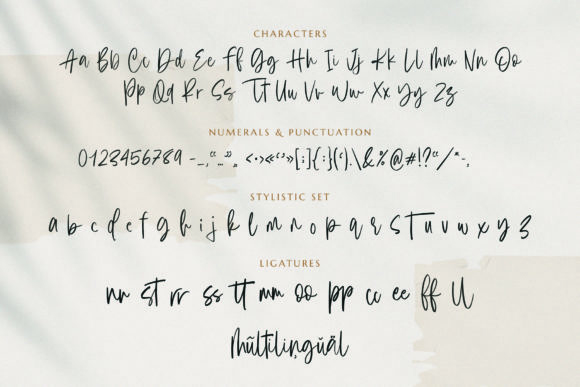 CHARACTERS
Aa Bb Cc Dd Ee Ff Gg Hh Ii Jj Kk Ll Mm Nn Oo
Pp Qq Rr Ss Tt Uu Vv Ww Xx Yy Zz
NUMERALS & PUNCTUATION
0123456789 -_,“”„ <·>«‘’»[;]{:}(‘).\&%@#!?“/*-,
STYLISTIC SET
a b c d e f g h i j k l m n o p q r s t u v w x y z
LIGATURES
nn st rr ss tt mm oo pp cc ee ff ll
Mũltilinguäl